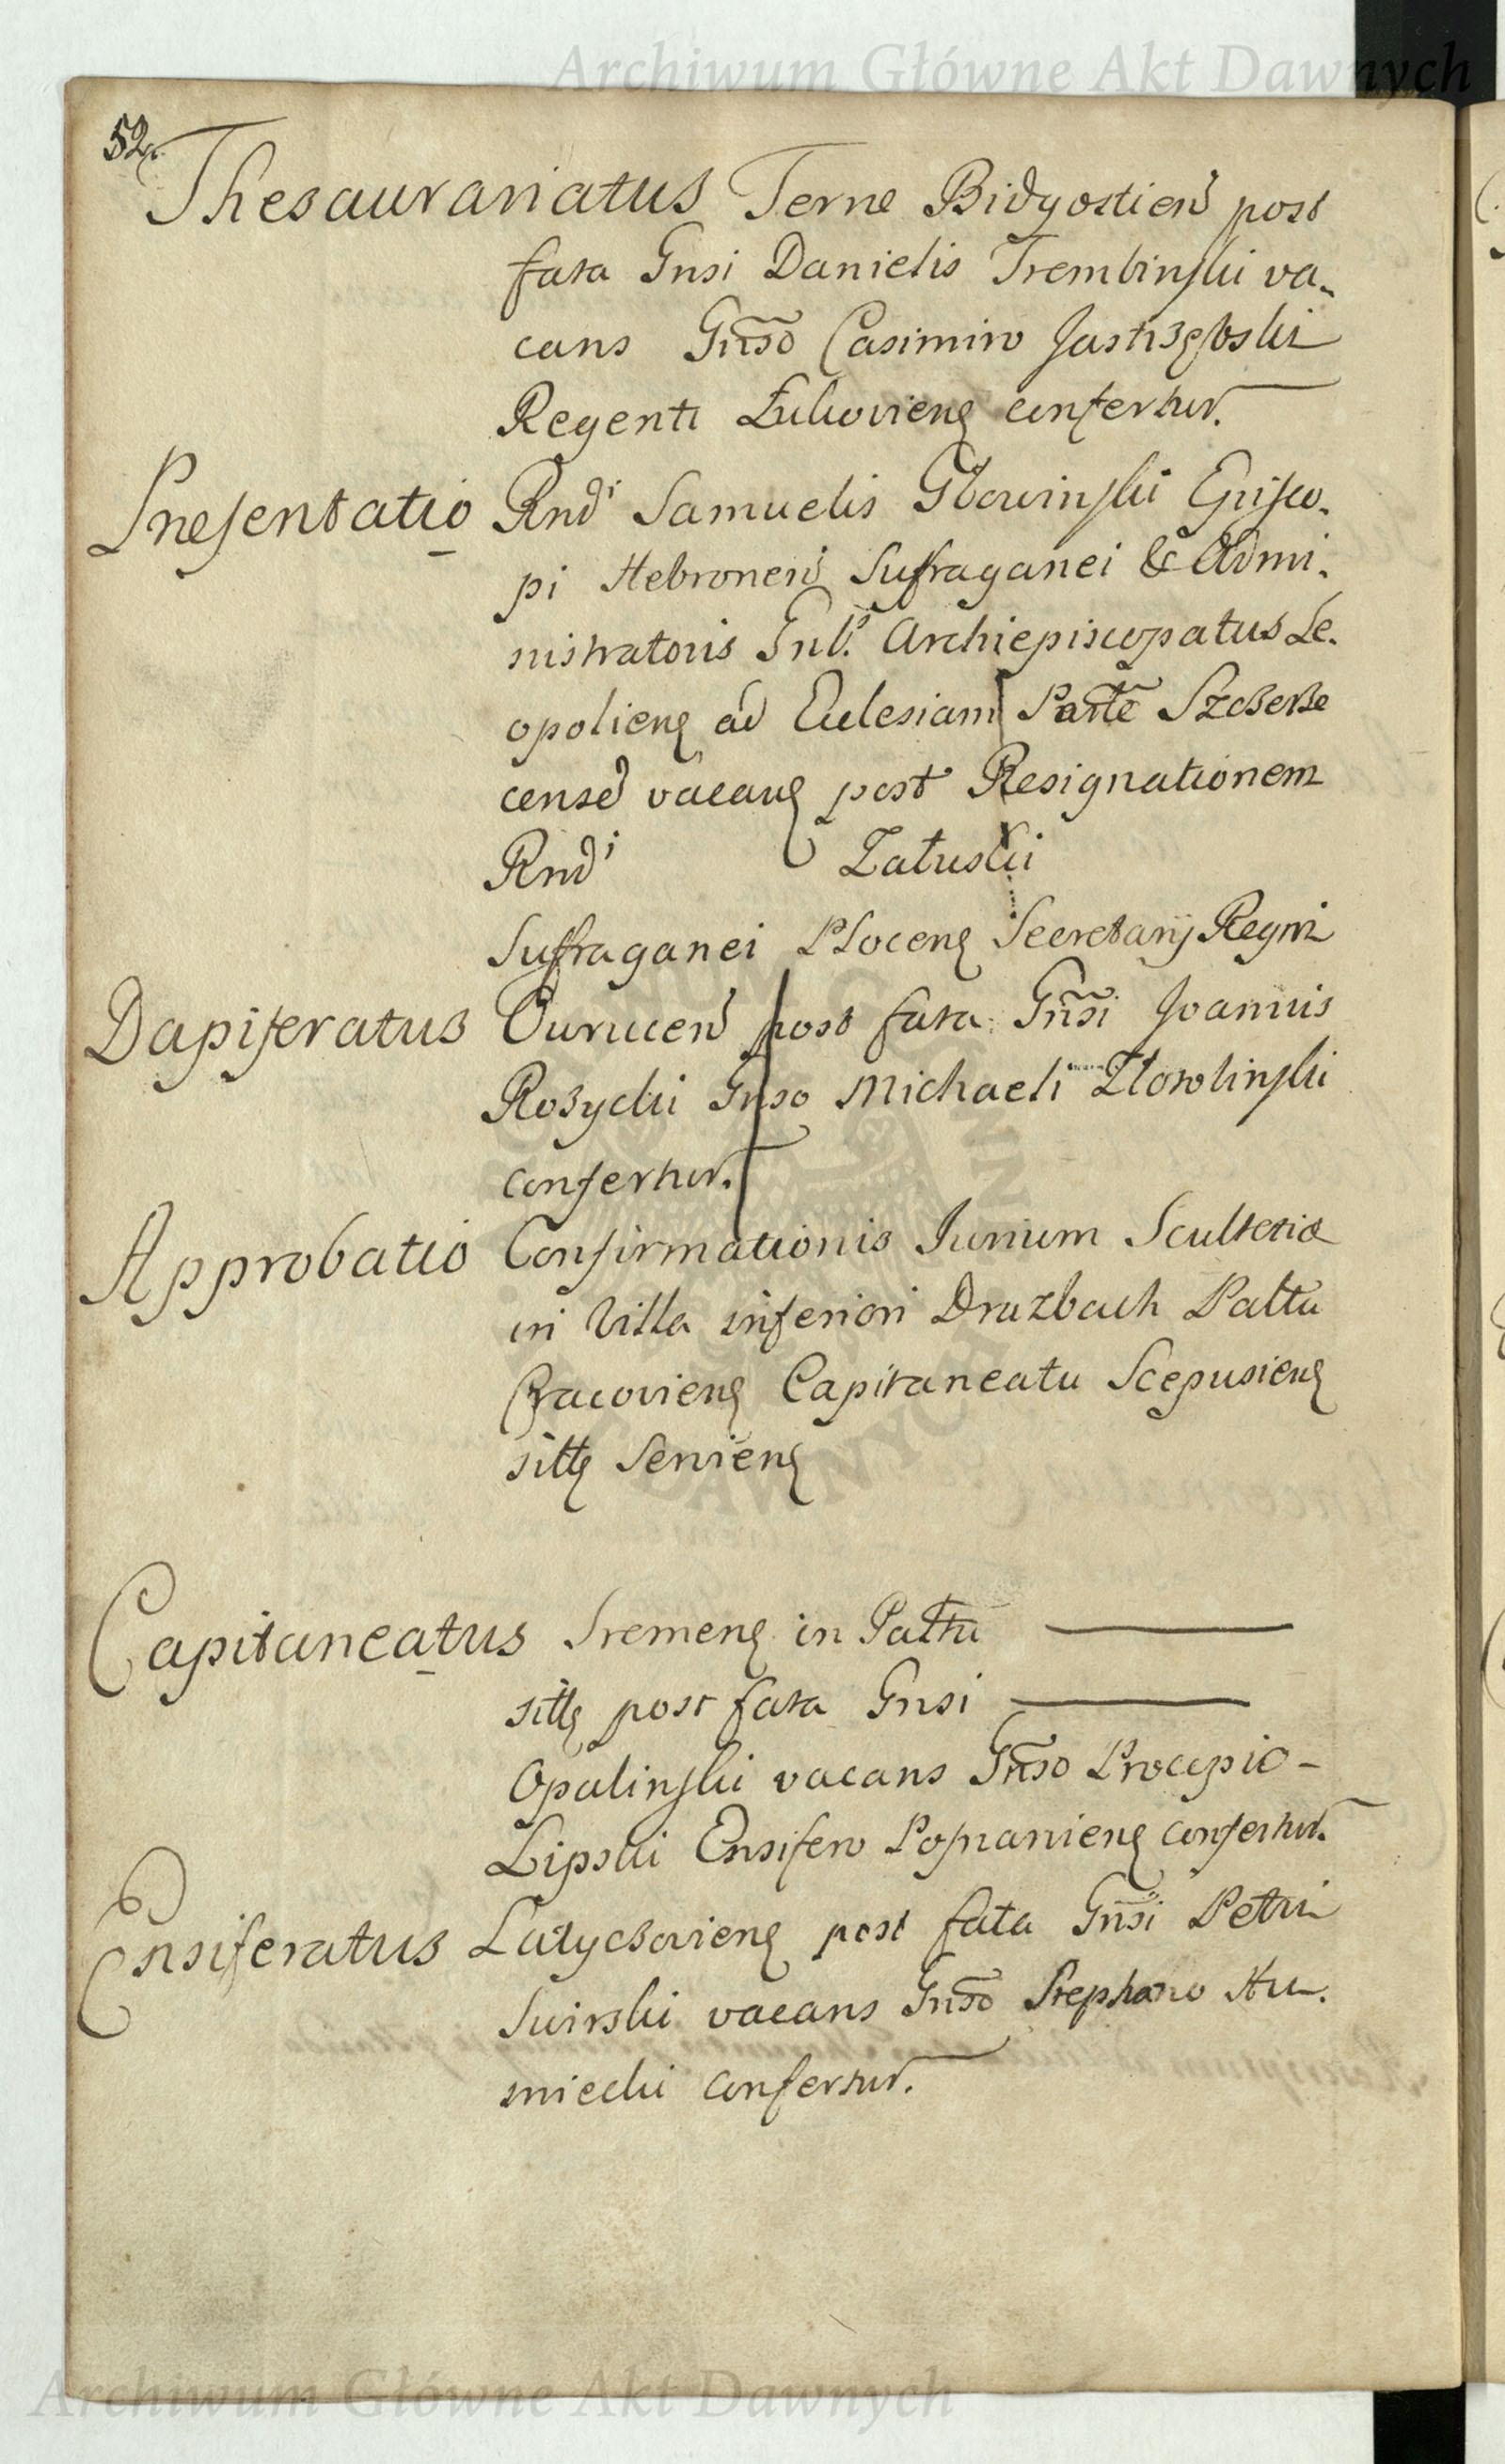 Archiwum Główne Akt Dawnych
52.
Thesaurariatus Terrae Bidgostien post
fata Gnsi Danielis Trembinski va-
cans Gnso Casimiro Jastrzębski
Regenti Łukovien confertur.
Praesentatio Rndi Samuelis Głowinski Episco-
pi Hebronen Sufraganei & Admi-
nistratoris Gnl. Archiepiscopatus Le-
opolien ad Ecclesiam Parłe Szczerze
censem vacan post Resignationem
Rndi Załuski
Suffraganei Płocen Secretarij Regni
Dapiferatus Owrucen post fata Gnsi Joannis
Rożycki Gnso Michaeli Złotolinski
confertur.
Approbatio Confirmationis Jurium Scultetiae
in Villa inferiori Druzbach Pałtu
Cracovien Capitaneatu Scepusien
sitt Servien
Capitaneatus Sremen in Pałtu
sitt post fata Gnsi
Opalinski vacans Gnso Procopio -
Lipski Ensifero Posnanien confertur.
Ensiferatus Latyczovien post fata Gnsi Petri
Swirski vacans Gnso Stephano Hu-
miecki confertur.
Archiwum Główne Akt Dawnych